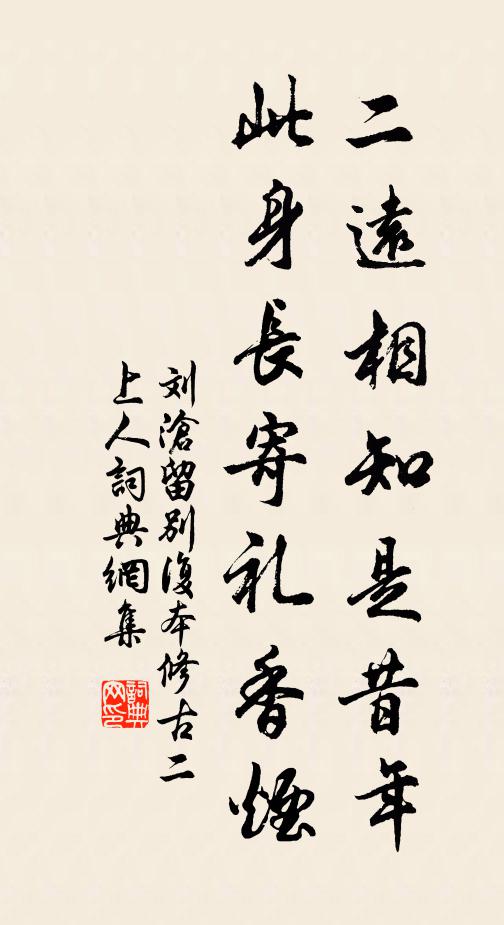 二遠相知是昔年
此身長寄礼香煙
刘滄留別復本修古二
上人詞典網集
詞典網印